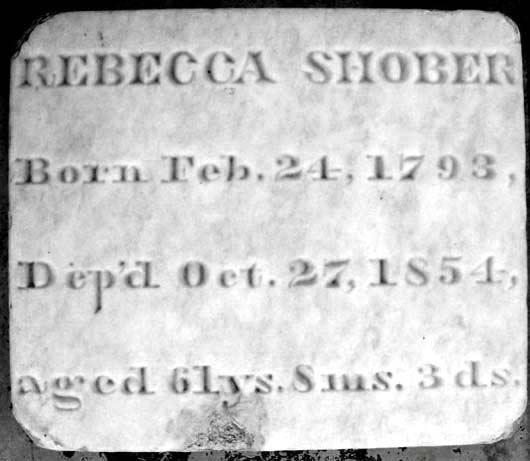 REBECCA SHOBER
Born Feb. 24, 1793,
Dep'd Oct. 27, 1854,
aged 61ys. 8ms. 3ds.